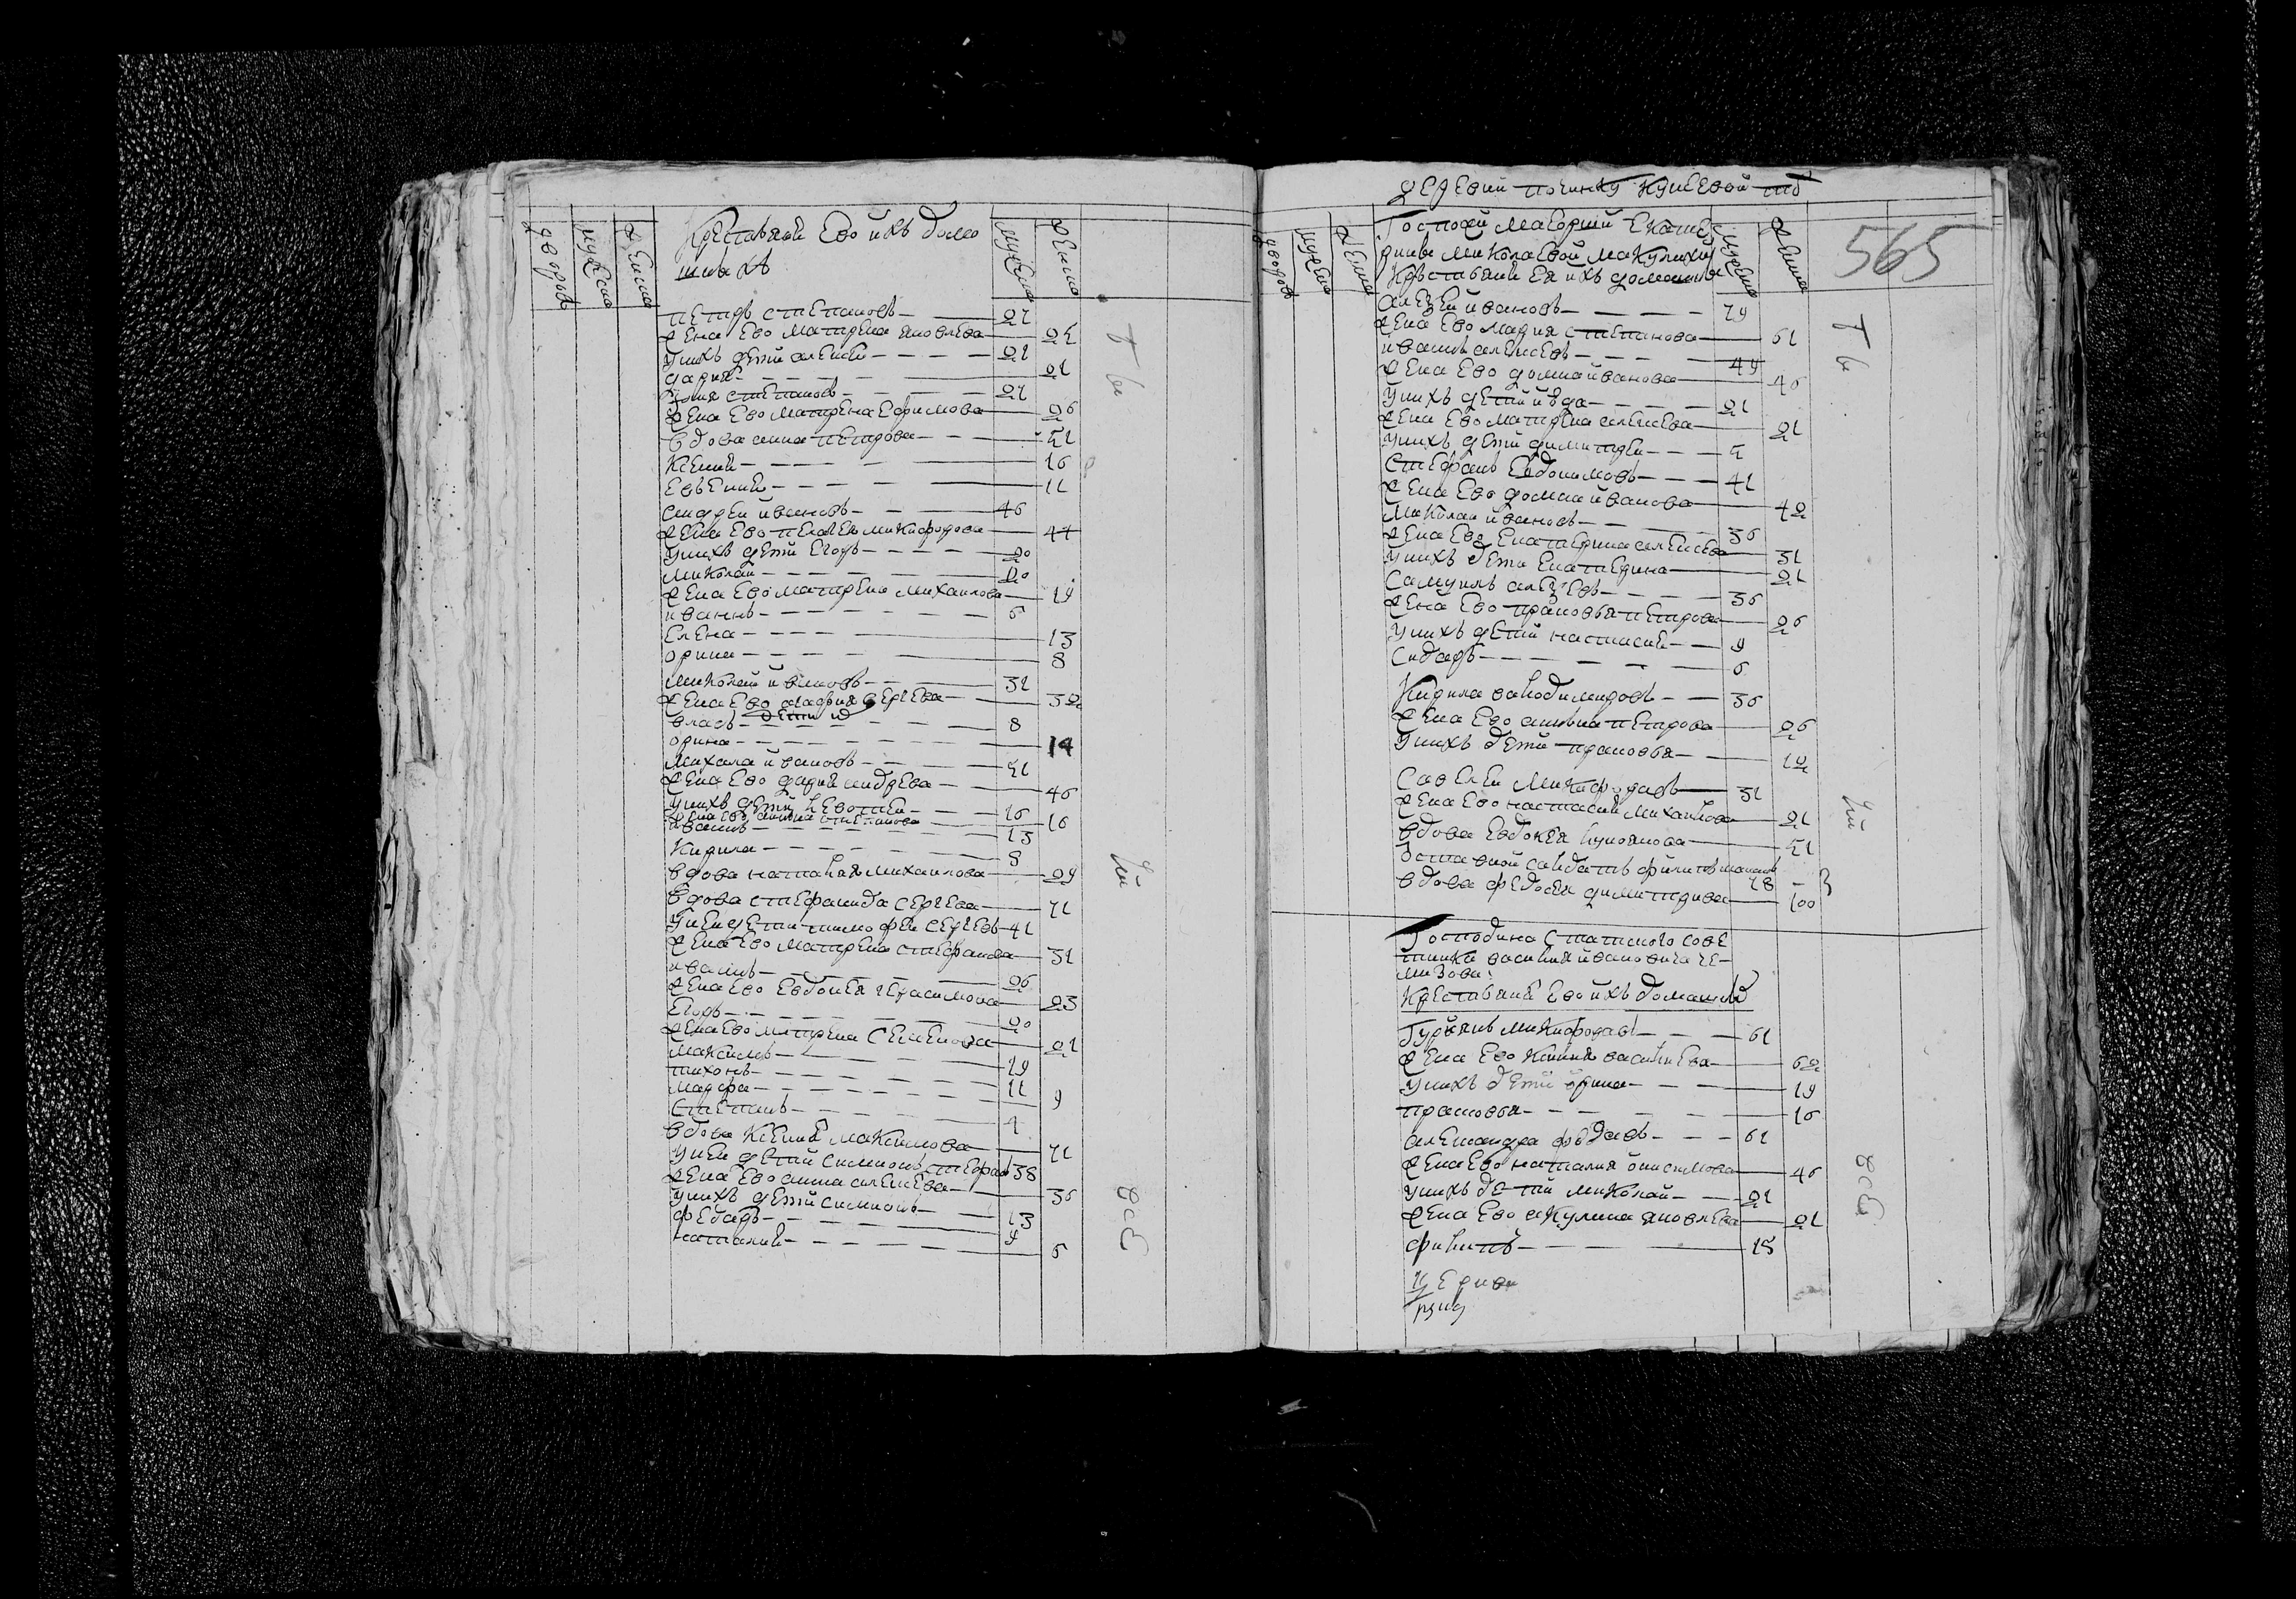 дворовъ
мужеска
женска
Крестьяне Ево ихъ дома
шныхъ
мужеска
женска
петръ степановъ 27
жена Ево матрена яковлева 25
у нихъ дети алексей 21
дария 21
степановъ 27
жена Ево матрена Ефимова 26
вдова анна петрова 51
Ксения 16
Евгения 11
андрей ивановъ 46
жена Ево пелагея микифорова 44
у нихъ дети Егоръ 20
миколай 20
жена Ево матрена михаилова 19
иванъ 6
Елена 13
орина 8
миколай ивановъ 31
жена Ево марфия Сергеева 32
власъ дети их 8
орина 14
михаила ивановъ 51
жена Ево дария андреева 46
у нихъ дети 16
жена Ево анна степанова 16
иванъ 13
Кирила 8
вдова наталия михаилова 29
вдова степанида сергеева 71
у ней дети тимофей сергеевъ 41
жена Ево матрена степанова 31
иванъ 26
жена Ево Евдокея герасимова 23
Егоръ 20
жена Ево матрена семенова 21
максимъ 19
тихонъ 11
марфа 9
степанъ 4
вдова Ксения максимова 71
у ней дети симионъ стефанов 38
жена Ево анна алексеева 36
у нихъ дети симионъ 13
федаръ 9
наталия 6
деревни починку Кунеевой тоб
565
дворовъ
мужеска
женска
Госпожи маеорши Екате
рины миколаевой макулихиной
Крестьяни Ея ихъ домашныхъ
мужеска
женска
алексей ивановъ 79
жена Ево мария степанова 61
иванъ алексеевъ 49
жена Ево домна иванова 46
у нихъ дети 21
жена Ево матрена алексеева 21
у нихъ дети димитрей 5
стефанъ Евдокимовъ 41
жена Ево домна иванова 42
миколаи ивановъ 36
жена Ево Екатерина алексеева 31
у нихъ дети Екатерина 21
Самуилъ алексеевъ 36
жена Ево прасковья петрова 26
у нихъ дети настасия 9
сидаръ 6
Кирила валодимировъ 36
жена Ево анна петрова 26
у нихъ дети прасковья 12
Савелей микифоравъ 31
жена Ево настасия михаилова 21
вдова Евдокея лукоянова 51
Оставной салдатъ филипъ 78
вдова федосея димитриева 100
Господина статского сове
тника василия ивановича че-
мизова
Крестьяне Ево ихъ домашныхъ
Гурьянъ микифоравъ 61
жена Ево Ксения василиева 62
у нихъ дети орина 19
прасковья 16
александра федаръ 61
жена Ево наталия онисимова 46
у нихъ дети миколай 21
жена Ево акулина яковлева 21
филипъ 15
церкви